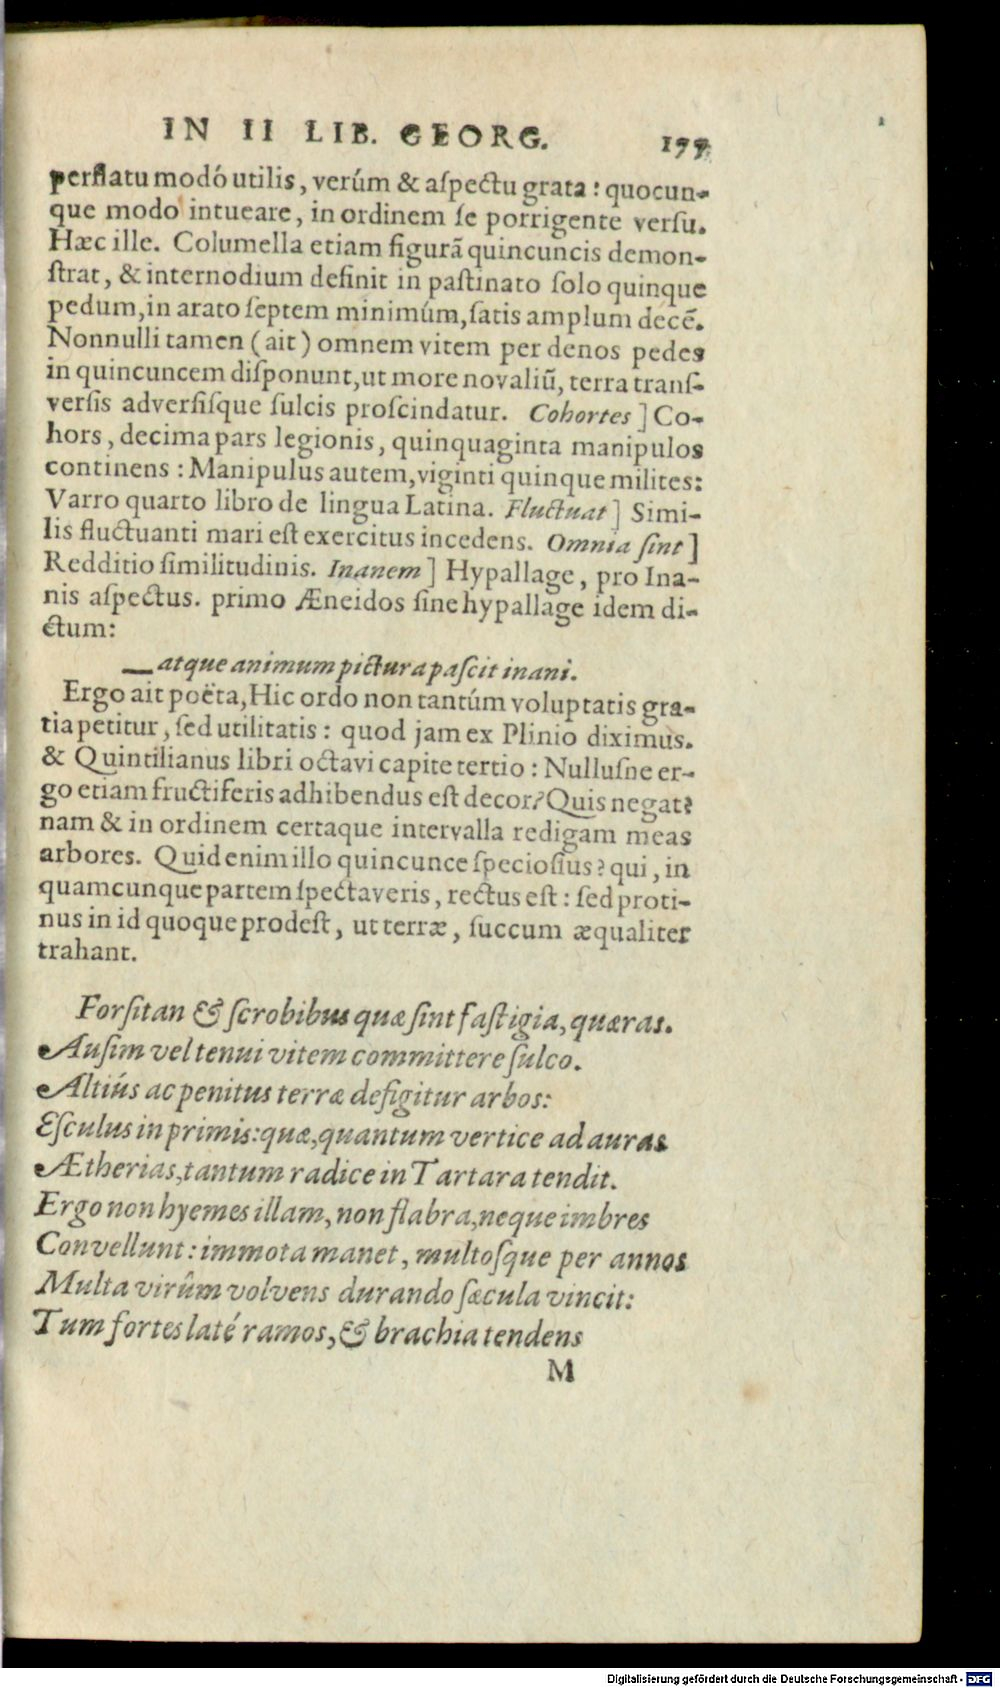 IN II LIB. GEORG. 177
perflatu modó utilis, verúm & aſpectu grata: quocun-
que modo intueare, in ordinem ſe porrigente verſu.
Hæc ille. Columella etiam figurã quincuncis demon-
ſtrat, & internodium definit in paſtinato ſolo quinque
pedum, in arato ſeptem minimúm, ſatis amplum decẽ.
Nonnulli tamen (ait) omnem vitem per denos pedes
in quincuncem diſponunt, ut more novaliũ, terra tranſ-
verſis adverſiſque ſulcis proſcindatur. Cohortes] Co-
hors, decima pars legionis, quinquaginta manipulos
continens: Manipulus autem, viginti quinque milites:
Varro quarto libro de lingua Latina. Fluctuat] Simi-
lis fluctuanti mari eſt exercitus incedens. Omnia ſint]
Redditio ſimilitudinis. Inanem] Hypallage, pro Ina-
nis aſpectus. primo Æneidos ſine hypallage idem di-
ctum:
— atque animum pictura paſcit inani.
Ergo ait poëta, Hic ordo non tantúm voluptatis gra-
tia petitur, ſed utilitatis: quod jam ex Plinio diximus.
& Quintilianus libri octavi capite tertio: Nulluſne er-
go etiam fructiferis adhibendus eſt decor? Quis negat?
nam & in ordinem certaque intervalla redigam meas
arbores. Quid enim illo quincunce ſpecioſius? qui, in
quamcunque partem ſpectaveris, rectus eſt: ſed proti-
nus in id quoque prodeſt, ut terræ, ſuccum æqualiter
trahant.
Forſitan & ſcrobibus quæ ſint faſtigia, quæras.
Auſim vel tenui vitem committere ſulco.
Altiús ac penitus terræ defigitur arbos:
Eſculus in primis: quæ, quantum vertice ad auras
Ætherias, tantum radice in Tartara tendit.
Ergo non hyemes illam, non flabra, neque imbres
Convellunt: immota manet, multoſque per annos
Multa virûm volvens durando ſæcula vincit:
Tum fortes laté ramos, & brachia tendens
M
Digitalisierung gefördert durch die Deutsche Forschungsgemeinschaft - DFG